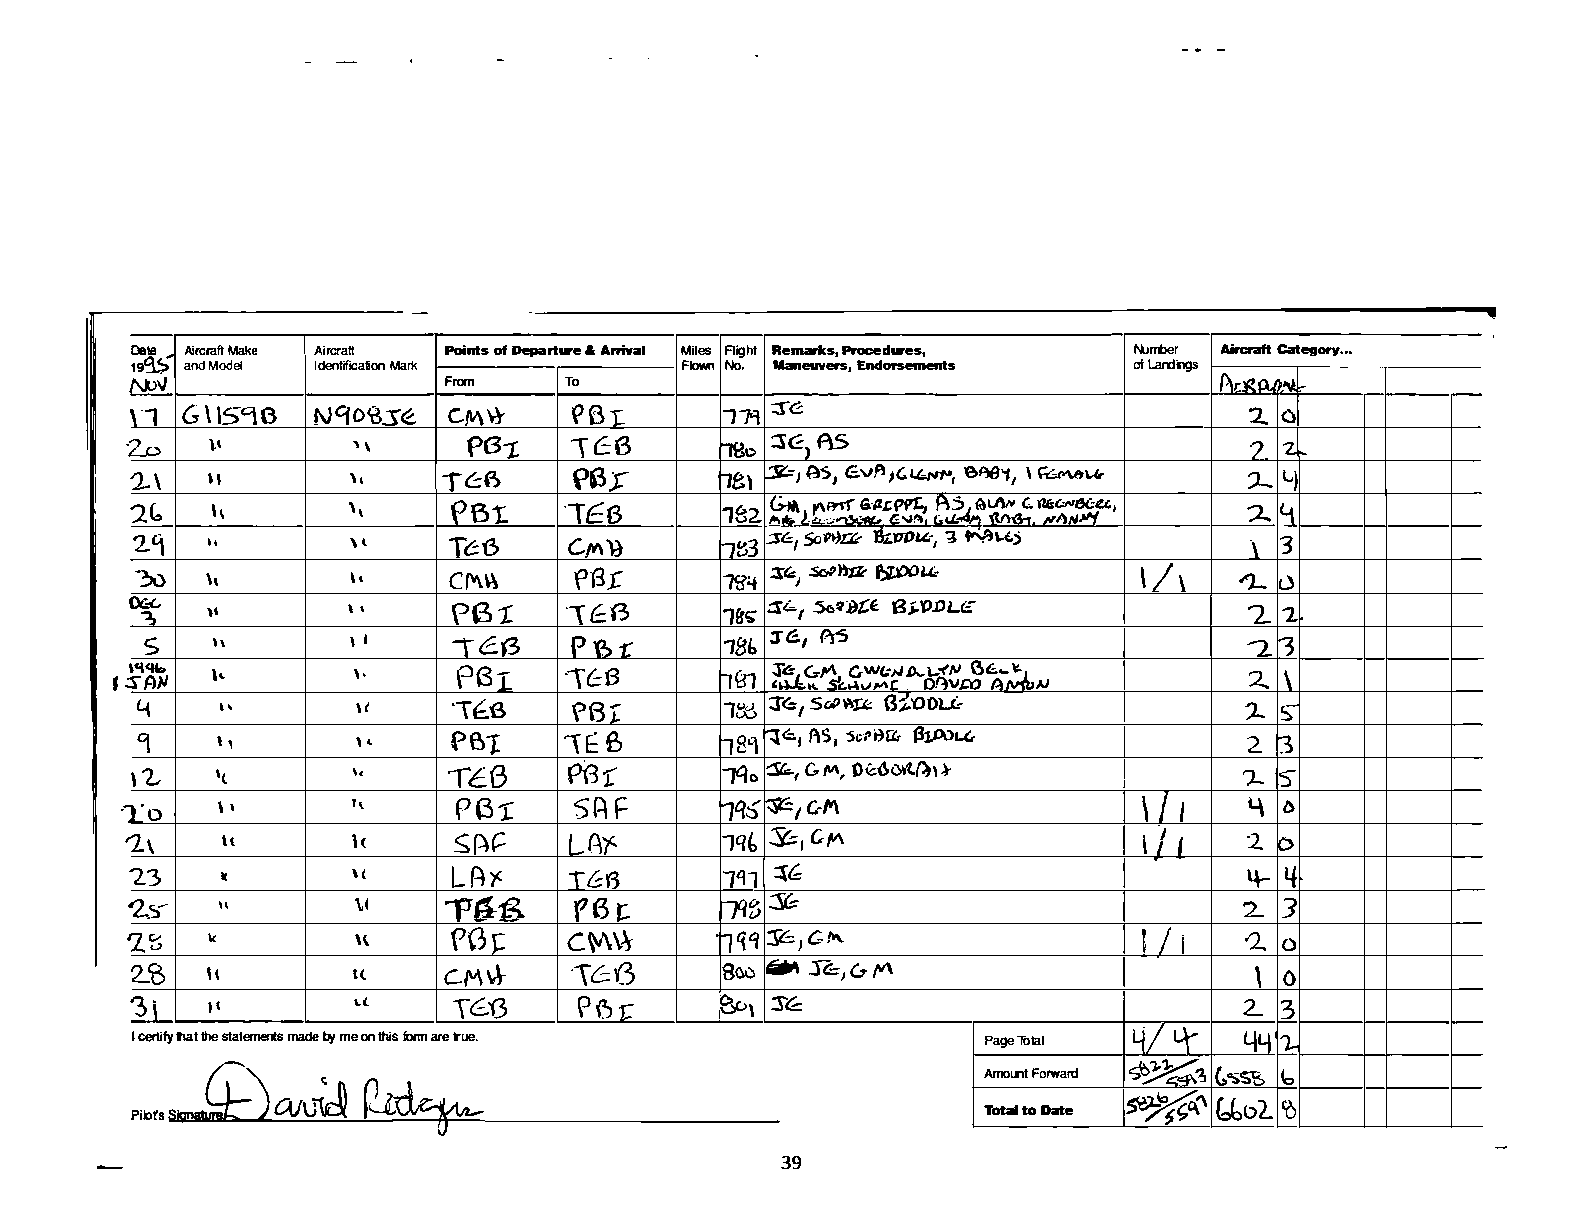 Date Aircraft Make Aircraft Points of Departure & Arrival Miles Flight Remarks, Procedures, Number Aircraft Category...
1995 and Model Identification Mark Flown No. Maneuvers, Endorsements of Landings
NOV From To
17 G1159B N908JE CMH PBI 779 JE 2 0
20 " " PBI TEB 780 JE, AS 2 2
21 " " TEB PBI 781 JE, AS, EVA, GLENN, BABY, 1 FEMALE 2 4
26 " " PBI TEB 782 GM, MATT GRIPPI, AS, ALAN GREENBERG, 2 4
EVA, GLENN, BABY, NANNY
29 " " TEB CMH 783 JE, SOPHIE BIDDLE, 3 MALES 1 3
30 " " CMH PBI 784 JE, SOPHIE BIDDLE 1/1 2 0
DEC
3 " " PBI TEB 785 JE, SOPHIE BIDDLE 2 2
5 " " TEB PBI 786 JE, AS 2 3
1996
1 JAN " " PBI TEB 787 JE, GM, GWENDOLYN BECK, 2 1
DAVID
4 " " TEB PBI 788 JE, SOPHIE BIDDLE 2 5
9 " " PBI TEB 789 JE, AS, SOPHIE BIDDLE 2 3
12 " " TEB PBI 790 JE, GM, DEBORAH 2 5
20 " " PBI SAF 795 JE, GM 1/1 4 0
21 " " SAF LAX 796 JE, GM 1/1 2 0
23 " " LAX TEB 797 JE 4 4
25 " " TEB PBI 798 JE 2 3
28 " " PBI CMH 799 JE, GM 1/1 2 0
28 " " CMH TEB 800 JE, GM 1 0
31 " " TEB PBI 801 JE 2 3
I certify that the statements made by me on this form are true. Page Total 4/4 44 2
Amount Forward 5822/5593 6558 6
Pilot's Signature David Rodgers Total to Date 5826/5597 6602 8
39